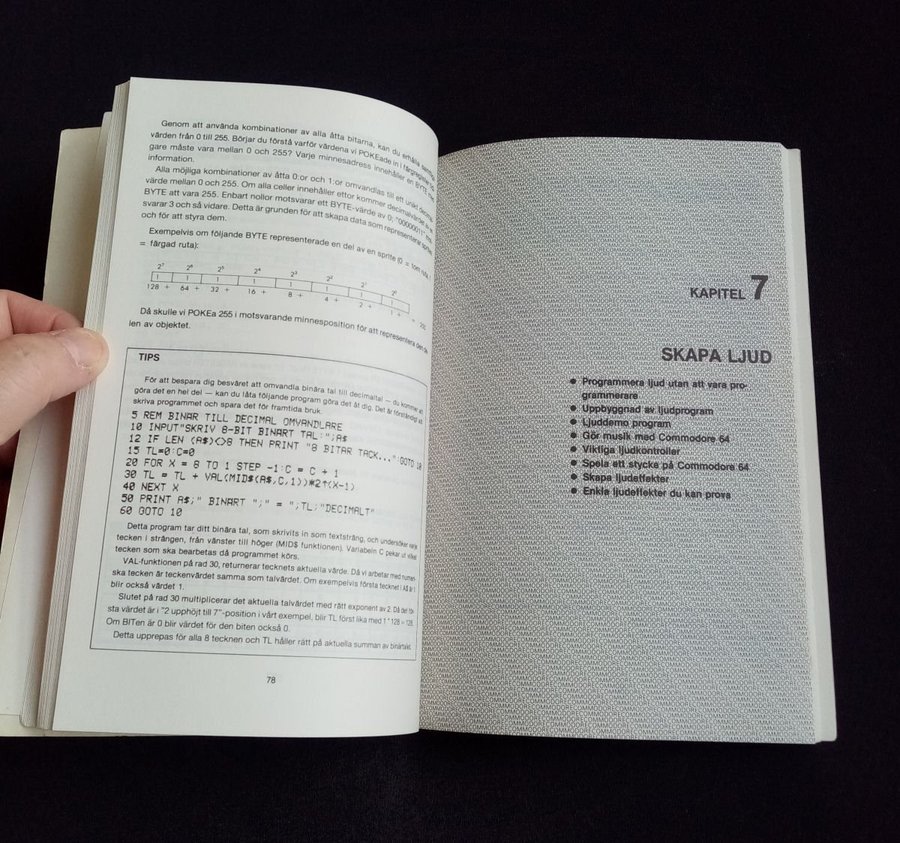 Genom att använda kombinationer av alla åtta bitarna, kan du erhålla
värden från 0 till 255. Börjar du förstå varför värdena vi POKEade in i
gare måste vara mellan 0 och 255? Varje minnesadress innehåller en BYTE
information.
Alla möjliga kombinationer av åtta 0:or och 1:or omvandlas till ett unikt
värde mellan 0 och 255. Om alla celler innehåller ettor kommer decimalvärdet
BYTE att vara 255. Enbart nollor motsvarar ett BYTE-värde av 0; "00000011"
svarar 3 och så vidare. Detta är grunden för att skapa data som representerar
och för att styra dem.
Exempelvis om följande BYTE representerade en del av en sprite (0 = tom ruta,
= färgad ruta):
2⁷ 2⁶ 2⁵ 2⁴ 2³ 2² 2¹ 2⁰
1 1 1 1 1 1 1 1
128 + 64 + 32 + 16 + 8 + 4 + 2 + 1 = 255
Då skulle vi POKEa 255 i motsvarande minnesposition för att representera den
len av objektet.
TIPS
För att bespara dig besväret att omvandla binära tal till decimaltal — du kommer att
göra det en hel del — kan du låta följande program göra det åt dig. Det är förståndigt att
skriva programmet och spara det för framtida bruk.
5 REM BINAR TILL DECIMAL OMVANDLARE
10 INPUT"SKRIV 8-BIT BINART TAL:";A$
12 IF LEN (A$)<>8 THEN PRINT "8 BITAR TACK...":GOTO 10
15 TL=0:C=0
20 FOR X = 8 TO 1 STEP -1:C = C + 1
30 TL = TL + VAL(MID$(A$,C,1))*2↑(X-1)
40 NEXT X
50 PRINT A$;" BINART ";" = ";TL;"DECIMALT"
60 GOTO 10
Detta program tar ditt binära tal, som skrivits in som textsträng, och undersöker varje
tecken i strängen, från vänster till höger (MID$ funktionen). Variabeln C pekar ut vilket
tecken som ska bearbetas då programmet körs.
VAL-funktionen på rad 30, returnerar tecknets aktuella värde. Då vi arbetar med numeri-
ska tecken är teckenvärdet samma som talvärdet. Om exempelvis första tecknet i A$ är 1
blir också värdet 1.
Slutet på rad 30 multiplicerar det aktuella talvärdet med rätt exponent av 2. Då det för-
sta värdet är i "2 upphöjt till 7"-position i vårt exempel, blir TL först lika med 1 * 128 = 128.
Om BITen är 0 blir värdet för den biten också 0.
Detta upprepas för alla 8 tecknen och TL håller rätt på aktuella summan av binärtalet.
78
KAPITEL 7
SKAPA LJUD
● Programmera ljud utan att vara pro-
grammerare
● Uppbyggnad av ljudprogram
● Ljuddemo program
● Gör musik med Commodore 64
● Viktiga ljudkontroller
● Spela ett stycke på Commodore 64
● Skapa ljudeffekter
● Enkla ljudeffekter du kan prova